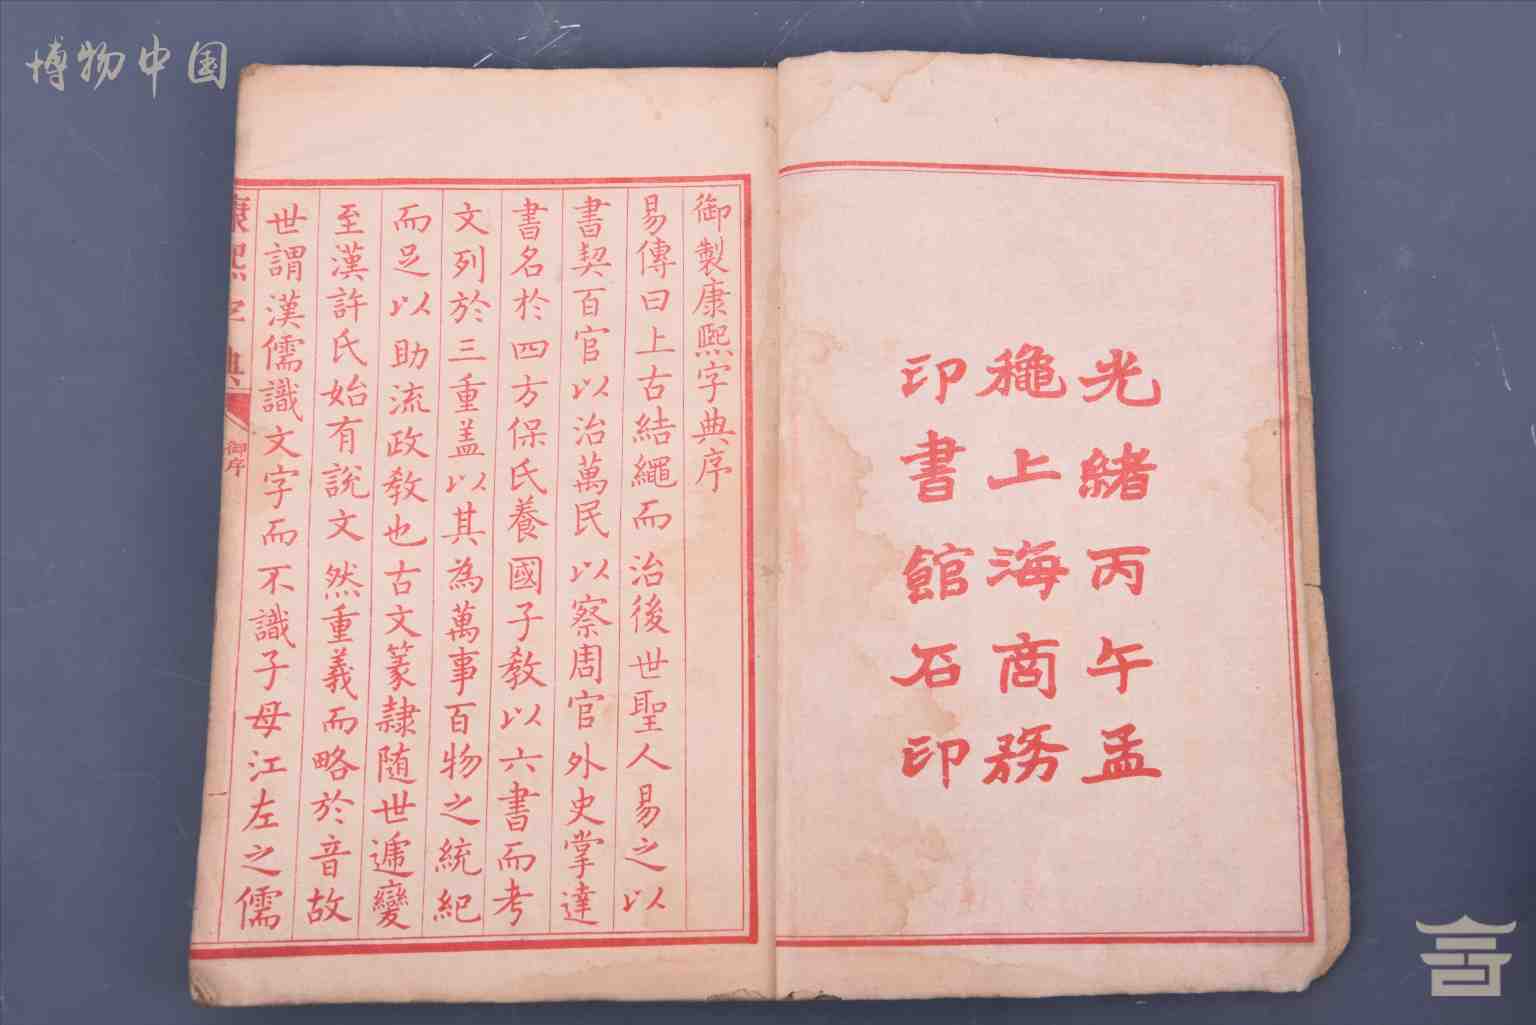 博物中国
光緒丙午孟
龝上海商務
印書館石印
御製康熙字典序
易傳曰上古結繩而治後世聖人易之以
書契百官以治萬民以察周官外史掌達
書名於四方保氏養國子教以六書而考
文列於三重盖以其為萬事百物之統紀
而足以助流政教也古文篆隷随世遞變
至漢許氏始有說文然重義而略於音故
世謂漢儒識文字而不識子母江左之儒
康熙字典
御序
一